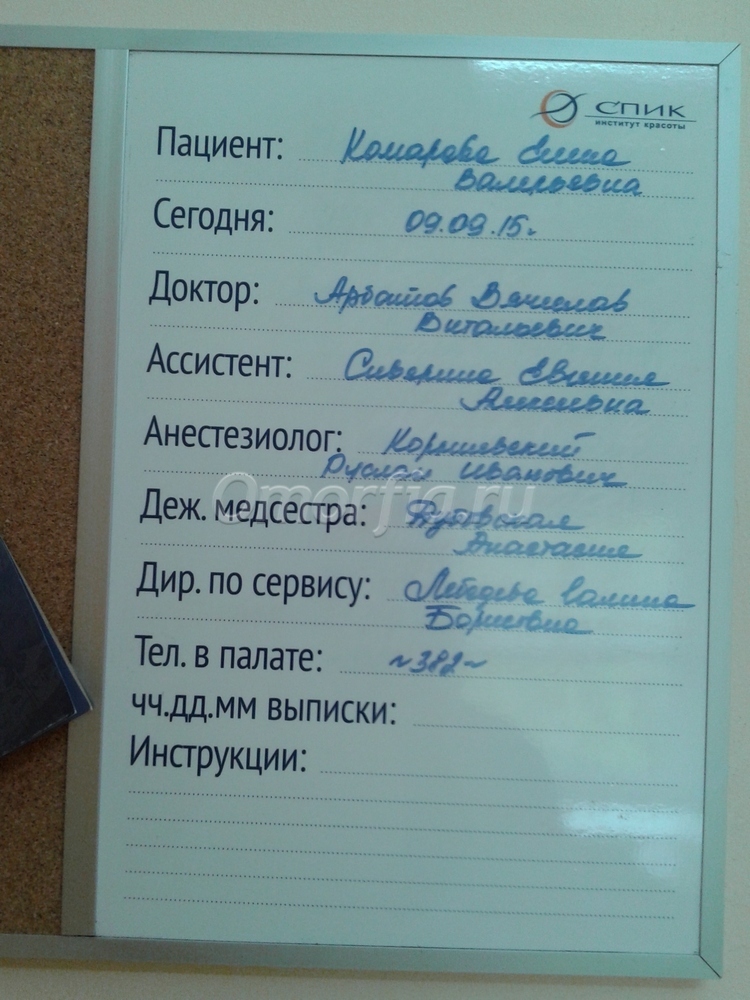 СПИК
институт красоты
Пациент: Комарова Елена
Валерьевна
Сегодня: 09.09.15.
Доктор: Арбатов Вячеслав
Виталиевич
Ассистент: Сиверина Евгения
Анестезиолог:
Руслан Иванович
Omorfia.ru
Деж. медсестра:
Анастасия
Дир. по сервису: Лебедева Галина
Борисовна
Тел. в палате: ~382~
чч.дд.мм выписки:
Инструкции: